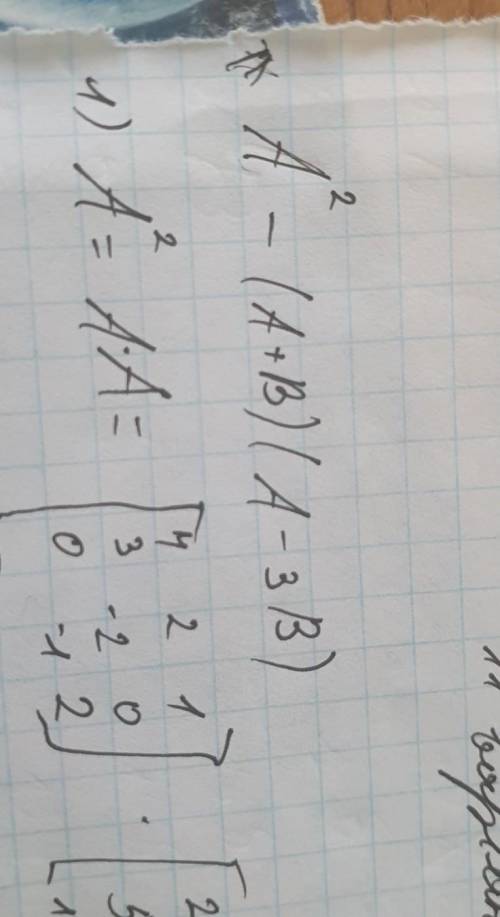 A² - (A+B)(A-3B)
1) A² = A·A =
[4 2 1
3 -2 0
0 -1 2] · [2
1